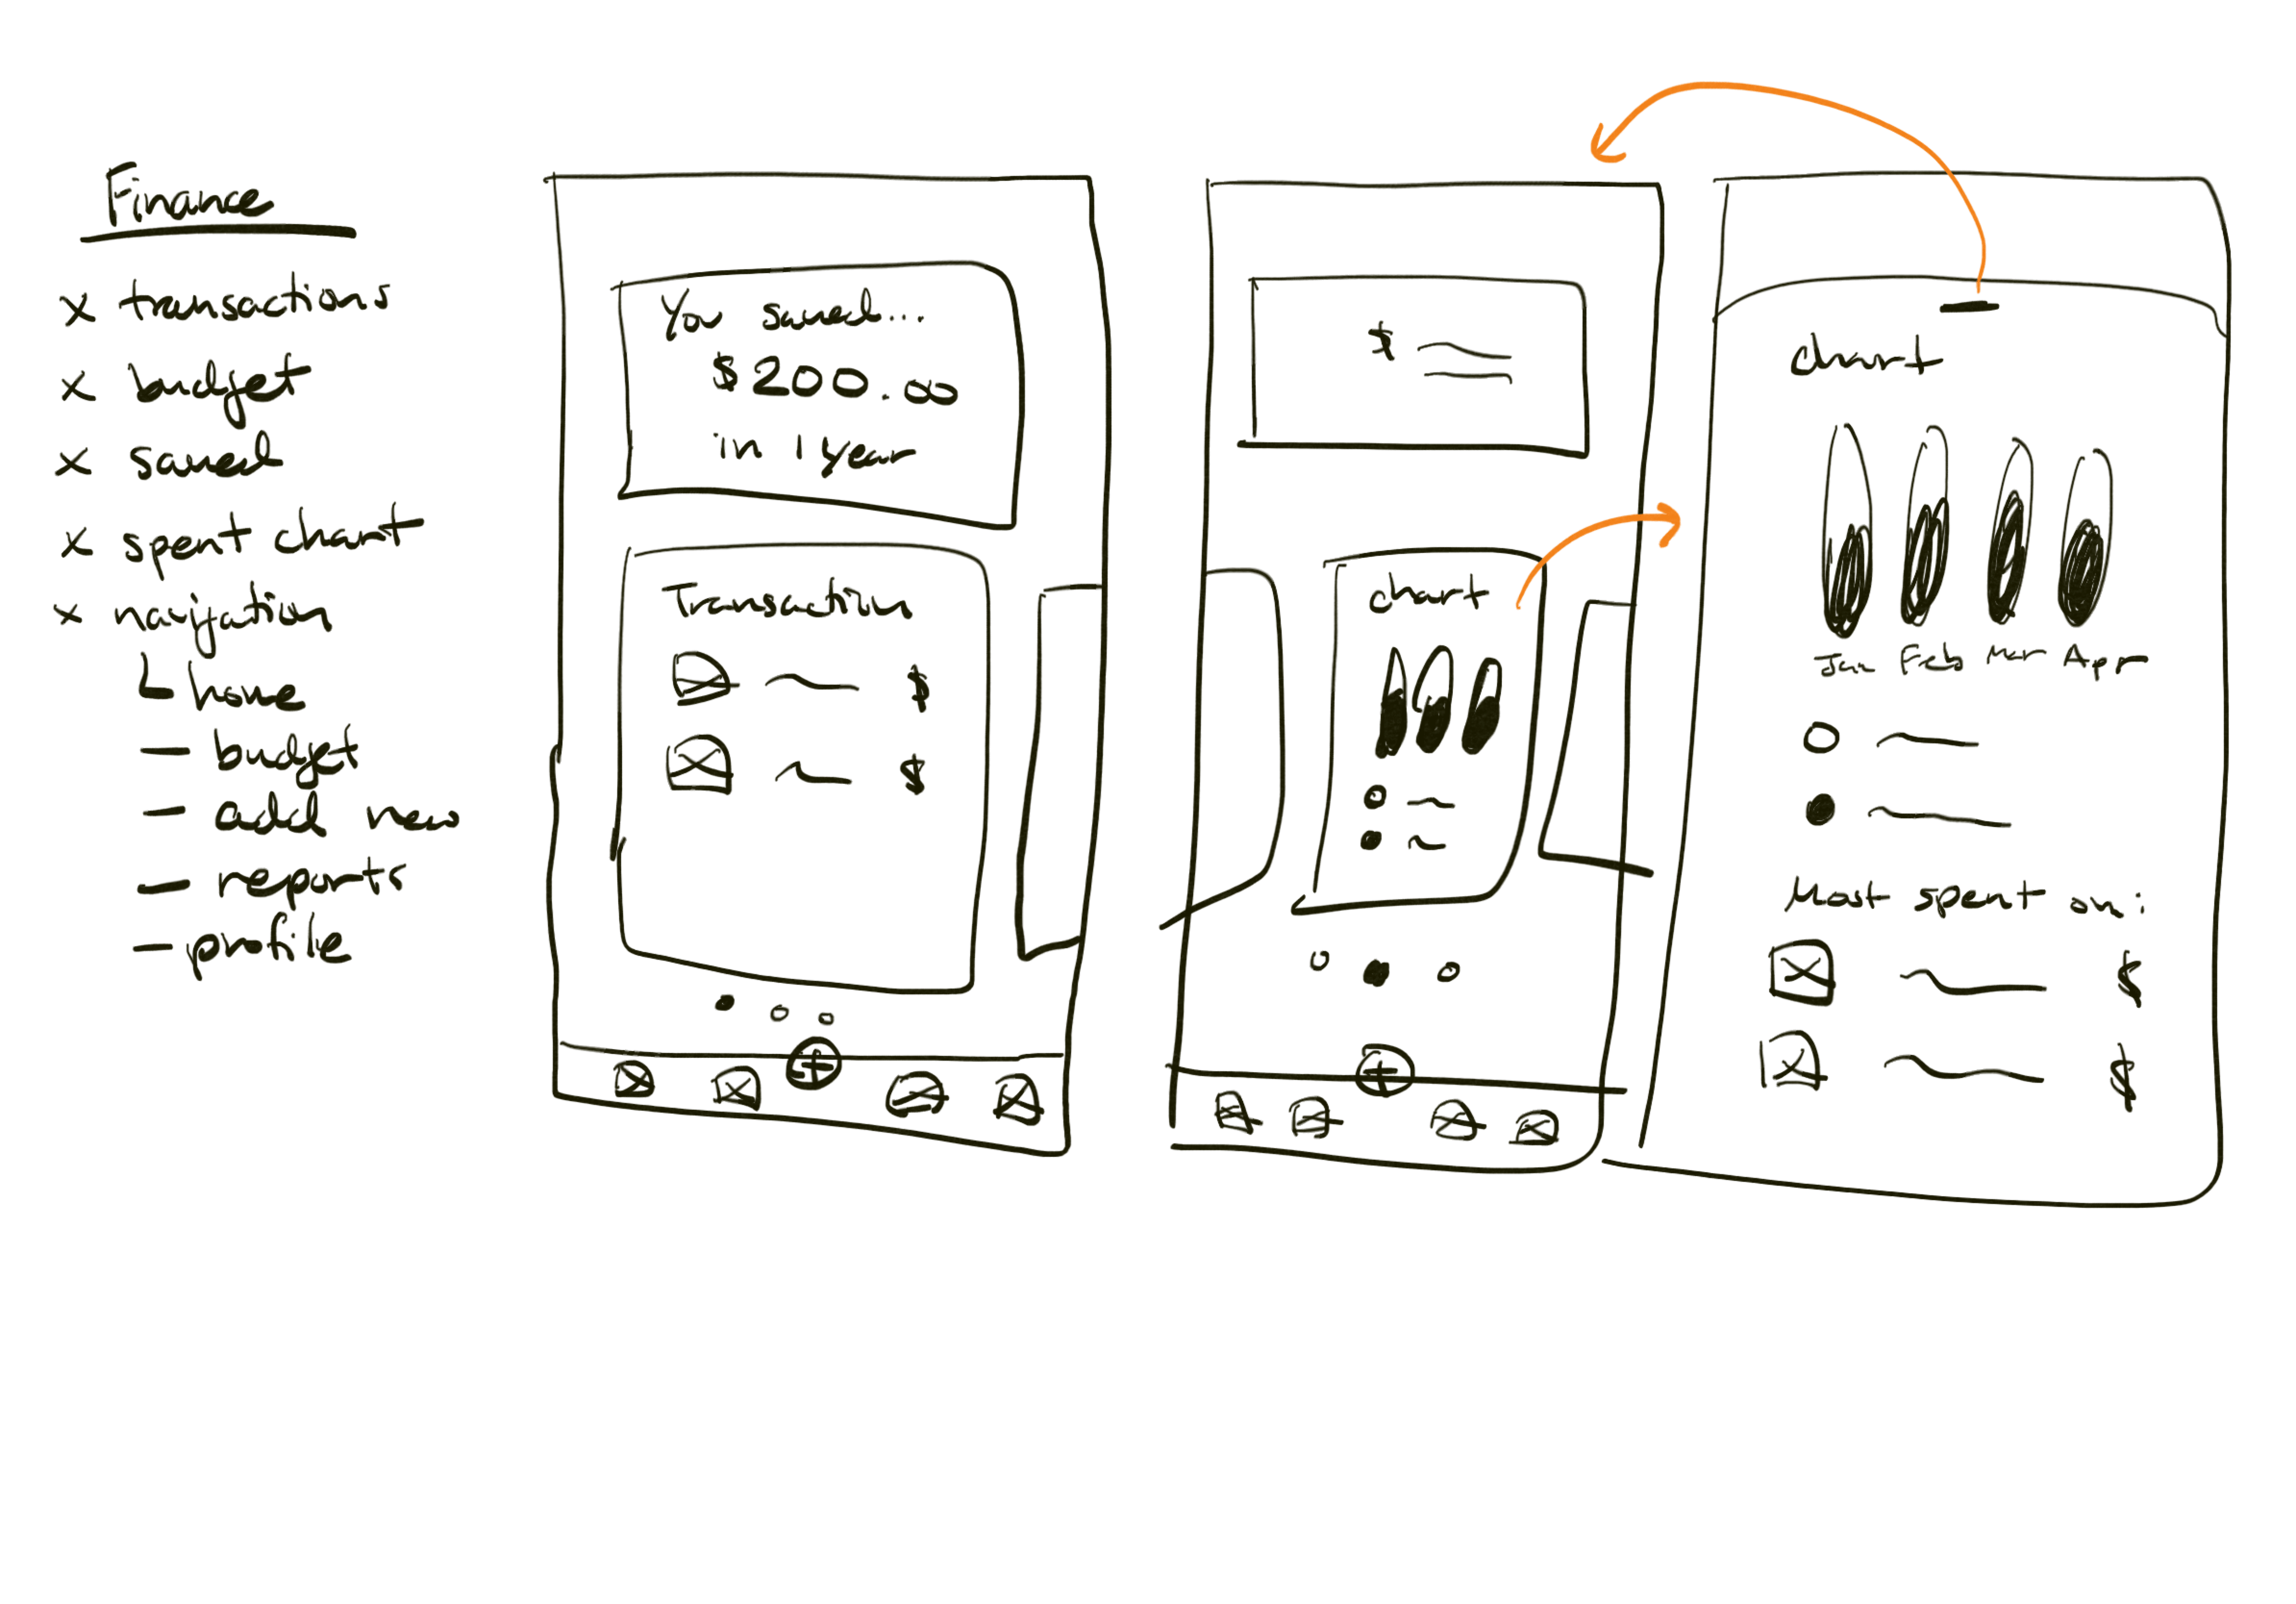 Finance
x transactions
x budget
x saved
x spent chart
x navigation
home
- budget
- add new
- reports
- profile
You saved...
$200.00
in 1 year
Transaction
$
$
+
$
chart
+
chart
Jan Feb Mar Apr
Most spent on:
$
$